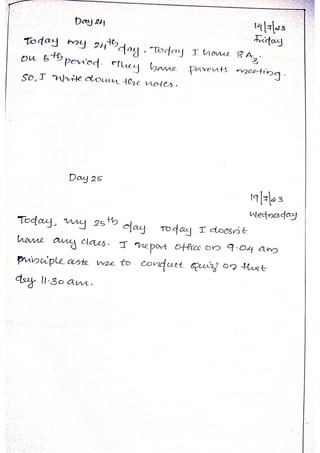 Day 24
14/7/23
Friday
Today my 24th day. Today I have 8A3
on 5th period. They have parents meeting.
So, I write down the notes.
Day 25
19/7/23
Wednaday
Today, my 25th day. Today I doesn't
have any class. I report office on 9.04 am
principle aste me to conduct quiz on that
dey 11.30 am.